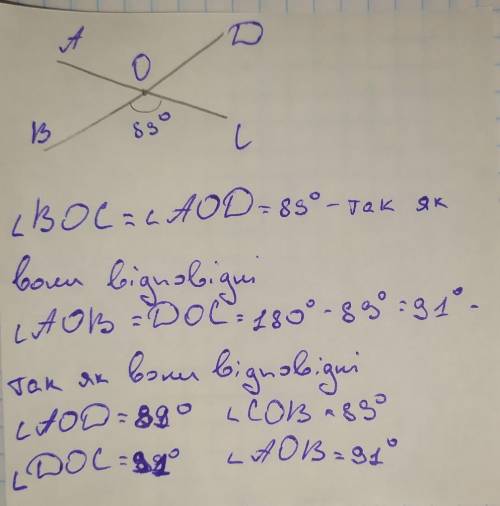 A
D
O
B
89°
C
∠BOC = ∠AOD = 89° - так як
вони відповідні
∠AOB = DOC = 180° - 89° = 91° -
так як вони відповідні
∠AOD = 89° ∠COB = 89°
∠DOC = 91° ∠AOB = 91°